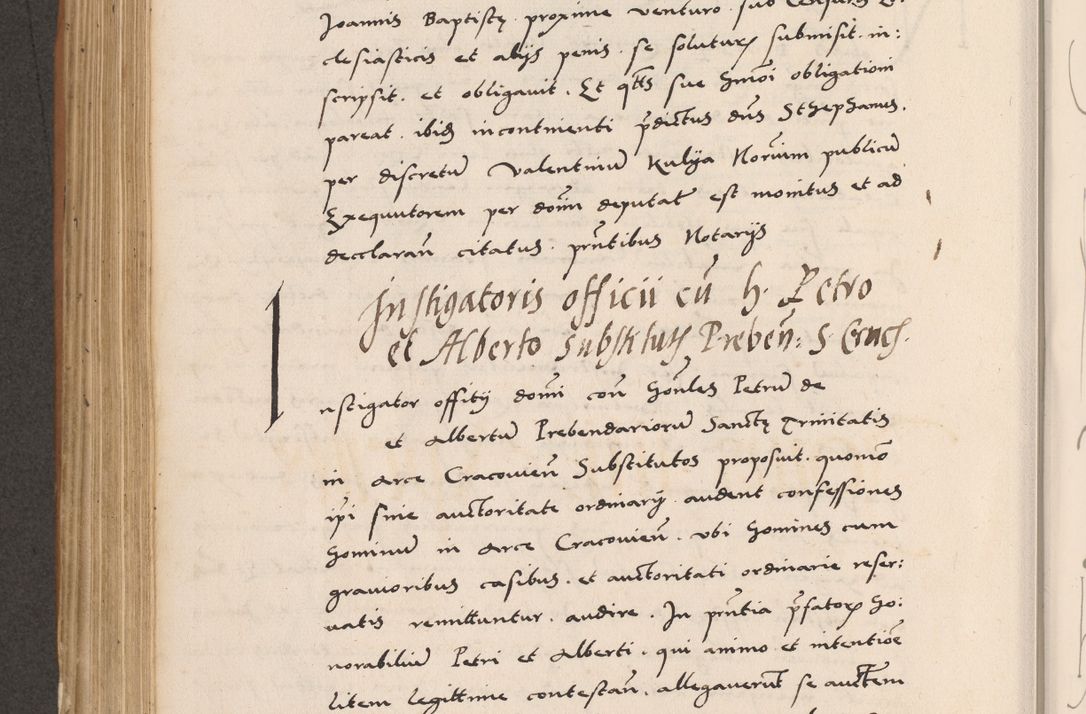 Joannis Baptistę proxime venturo sub Censuris Ec:
clesiasticis et alijs penis se soluturę submisit in:
scripsit. et obligavit. Et q̃tƷ sue hmõi obligationi
pareat. ibidƷ incontinenti p̃dictus dñs Sthephanus.
per discretũ Valentinũ Kulija Nor̃ium publicũ
Exequutorem per doñm deputat̃ est monitus et ad
decclaran̄ citatus. pñtibus Notarijs
Instigatoris officii cũ h. Petro
et Alberto Substitutƺ Preben̄: S. Crucƺ.
Instigator offitij domĩ con̄ hoñles Petrũ de
et Albertũ Prebendariorũ Sanctę Trinitatis
in Arce Cracovien̄ Substitutos proposuit. quomõ
ip̃i sine auctoritate ordinarij audent confessiones
hominũ in Arce Cracovien̄. ubi homines cum
gravioribus casibus. et auctoritati ordinarie reser:
vatis remittuntur. audire. In pñtia p̃fatorƺ ho:
norabiliũ Petri et Alberti. qui animo et intentiõe
litem legittime contestan̄. allegaverũt se auctem